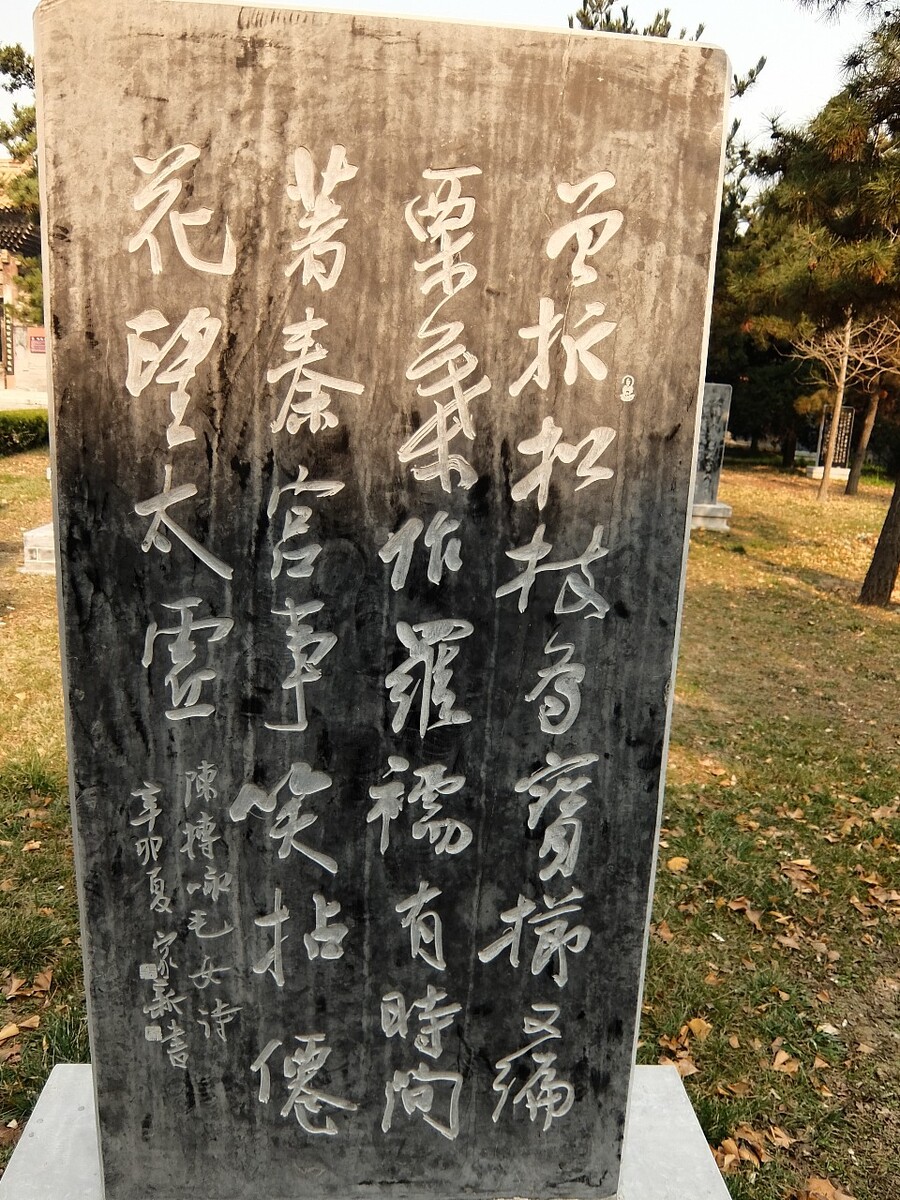 曾折松枝為寶櫛又編
栗葉作羅襦有時問
著秦宮事笑拈僊
花望太虛
陳摶咏毛女詩
辛卯夏 家書